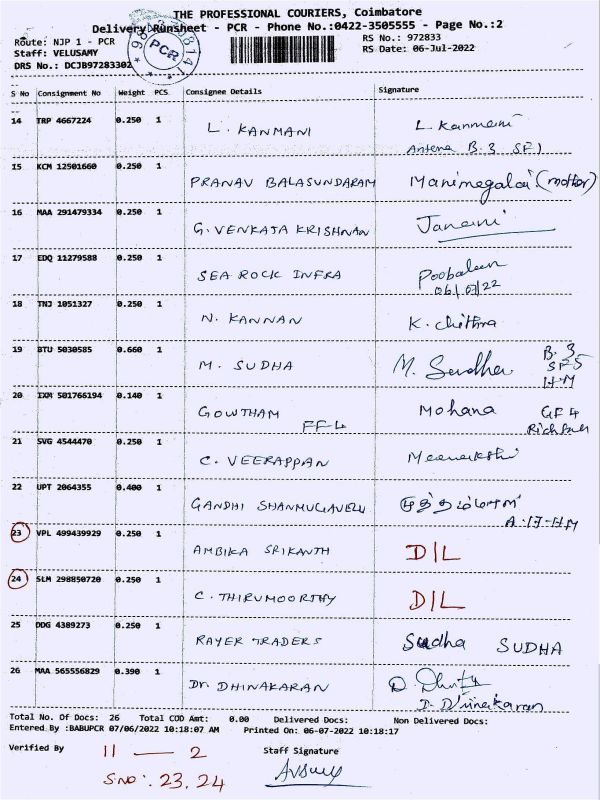 THE PROFESSIONAL COURIERS, Coimbatore
Delivery Runsheet - PCR - Phone No.:0422-3505555 - Page No.:2
Route: NJP 1 - PCR
RS No.: 972833
Staff: VELUSAMY
RS Date: 06-Jul-2022
DRS No.: DCJB97283302
PCR
S No Consignment No Weight PCS Consignee Details Signature
14 TRP 4667224 0.250 1 L. KANMANI L. Kanmani
Antena B.3 SF1
15 KCM 12501660 0.250 1 PRANAV BALASUNDARAM Manimegalai (mother)
16 MAA 291479334 0.250 1 G. VENKATA KRISHNAN Janani
17 EDQ 11279588 0.250 1 SEA ROCK INFRA Poobalan
06/07/22
18 TNJ 1051327 0.250 1 N. KANNAN K. Chithra
19 BTU 5030585 0.660 1 M. SUDHA M. Sudha B.3
SF5
H.M
20 IXM 501766194 0.140 1 GOWTHAM FF-4 Mohana GF4
21 SVG 4544470 0.250 1 C. VEERAPPAN Meenakshi
22 UPT 2064355 0.400 1 GANDHI SHANMUGAVELU
A.17-HM
23 VPL 499439929 0.250 1 AMBIKA SRIKANTH D/L
24 SLM 298850720 0.250 1 C. THIRUMOORTHY D/L
25 DDG 4389273 0.250 1 RAYER TRADERS Sudha SUDHA
26 MAA 565556829 0.390 1 Dr. DHINAKARAN
D. Dhinakaran
Total No. Of Docs: 26 Total COD Amt: 0.00 Delivered Docs: Non Delivered Docs:
Entered By :BABUPCR 07/06/2022 10:18:07 AM Printed On: 06-07-2022 10:18:17
Verified By 11 — 2 Staff Signature
S.no: 23, 24